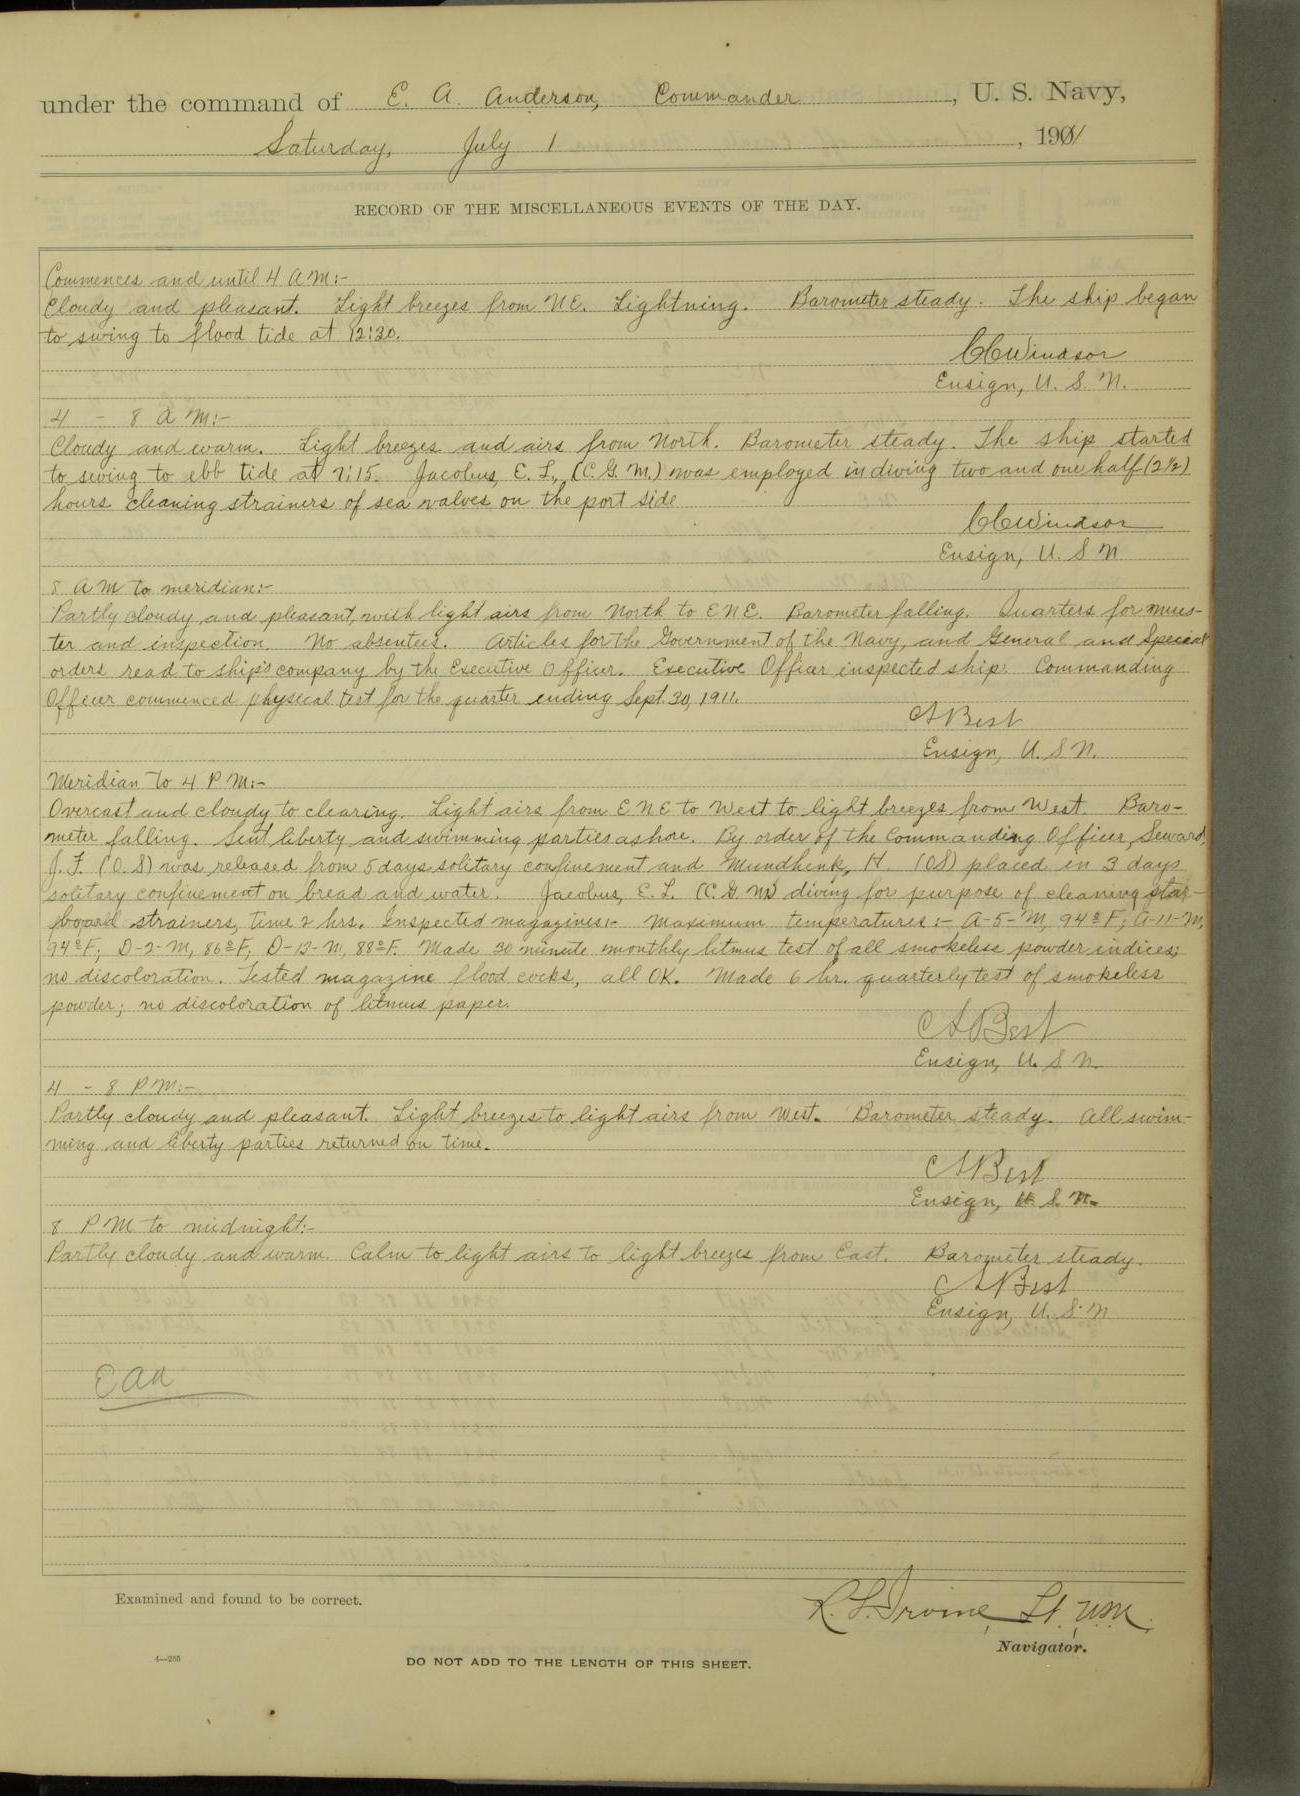 under the command of E. A. Anderson, Commander, U. S. Navy,
Saturday, July 1, 1901
RECORD OF THE MISCELLANEOUS EVENTS OF THE DAY.
Commences and until 4 A M:-
Cloudy and pleasant. Light breezes from NE. Lightning. Barometer steady. The ship began
to swing to flood tide at 12:30.
CCWindsor
Ensign, U. S. N.
4 - 8 A M:-
Cloudy and warm. Light breezes and airs from North. Barometer steady. The ship started
to swing to ebb tide at 7:15. Jacobus, E. L., (C. G. M.) was employed in diving two and one half (2½)
hours cleaning strainers of sea valves on the port side
CCWindsor
Ensign, U. S N
8 A M to meridian:-
Partly cloudy and pleasant, with light airs from North to E N E. Barometer falling. Quarters for mus-
ter and inspection. No absentees. Articles for the Government of the Navy, and General and Special
orders read to ship's company by the Executive Officer. Executive Officer inspected ship. Commanding
Officer commenced physical test for the quarter ending Sept. 30, 1911.
C A Best
Ensign, U. S N.
Meridian to 4 P M:-
Overcast and cloudy to clearing. Light airs from E N E to West to light breezes from West. Baro-
meter falling. Sent liberty and swimming parties ashore. By order of the Commanding Officer, Seward,
J. F. (O. S) was released from 5 days solitary confinement and Mundhenk, H. (OS) placed in 3 days
solitary confinement on bread and water. Jacobus, E. L. (C. G. M) diving for purpose of cleaning star-
board strainers, time 2 hrs. Inspected magazines:- Maximum temperatures:- A-5-M, 94°F; A-11-M,
94°F; D-2-M, 86°F; D-12-M, 88°F. Made 30 minute monthly litmus test of all smokeless powder indices;
no discoloration. Tested magazine flood cocks, all OK. Made 6 hr. quarterly test of smokeless
powder; no discoloration of litmus paper.
C A Best
Ensign, U. S N.
4 - 8 P M:-
Partly cloudy and pleasant. Light breezes to light airs from West. Barometer steady. All swim-
ming and liberty parties returned on time.
C A Best
Ensign, U. S. N.
8 P M to midnight:-
Partly cloudy and warm. Calm to light airs to light breezes from East. Barometer steady.
C A Best
Ensign, U. S. N
E A A
Examined and found to be correct.
R. L. Irvine, Lt. USN.
Navigator.
4—255
DO NOT ADD TO THE LENGTH OF THIS SHEET.